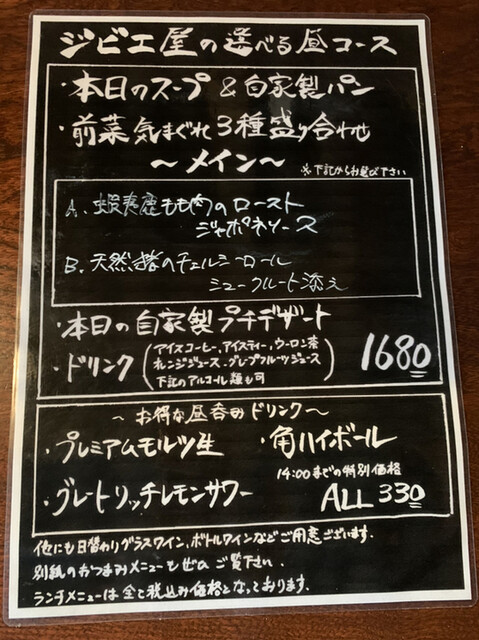 ジビエ屋の選べる昼コース
・本日のスープ & 自家製パン
・前菜気まぐれ3種盛り合わせ
～メイン～
※下記からお選び下さい
A. 蝦夷鹿もも肉のロースト
ジャポネソース
B. 天然猪のチェルシーロール
シュークルート添え
・本日の自家製プチデザート
・ドリンク (アイスコーヒー、アイスティー、ウーロン茶
オレンジジュース、グレープフルーツジュース
下記のアルコール類も可)
1680
～お得な昼呑みドリンク～
・プレミアムモルツ生 ・角ハイボール
14:00までの特別価格
・グレートリッチレモンサワー ALL 330
他にも日替わりグラスワイン、ボトルワインなどご用意ございます。
別紙のおつまみメニューもぜひご覧下さい。
ランチメニューは全て税込み価格となっております。